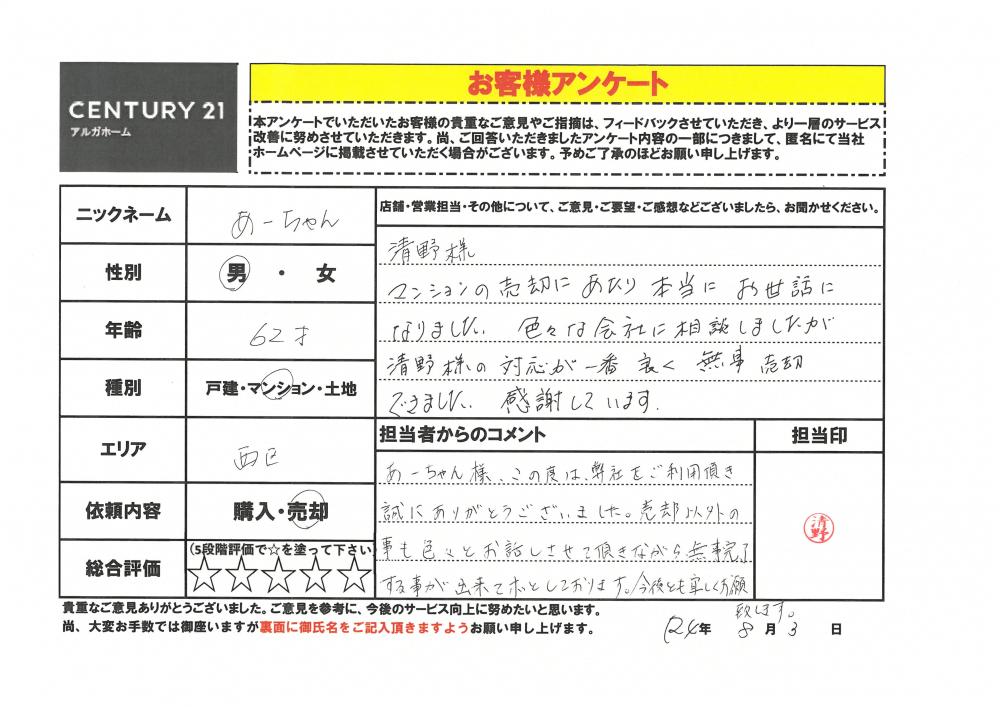 CENTURY 21
アルガホーム
お客様アンケート
本アンケートでいただいたお客様の貴重なご意見やご指摘は、フィードバックさせていただき、より一層のサービス
改善に努めさせていただきます。尚、ご回答いただきましたアンケート内容の一部につきまして、匿名にて当社
ホームページに掲載させていただく場合がございます。予めご了承のほどお願い申し上げます。
ニックネーム
あーちゃん
性別
男 ・ 女
年齢
62才
種別
戸建・マンション・土地
エリア
西区
依頼内容
購入・売却
総合評価
(5段階評価で☆を塗って下さい)
☆☆☆☆☆
店舗・営業担当・その他について、ご意見・ご要望・ご感想などございましたら、お聞かせください。
清野様
マンションの売却にあたり本当にお世話に
なりました。色々な会社に相談しましたが
清野様の対応が一番良く無事売却
できました。感謝しています。
担当者からのコメント
担当印
あーちゃん様、この度は、弊社をご利用頂き
誠にありがとうございました。売却以外の
事も色々とお話しさせて頂きながら無事完了
する事が出来てホッとしております。今後とも宜しくお願
致します。
清野
貴重なご意見ありがとうございました。ご意見を参考に、今後のサービス向上に努めたいと思います。
尚、大変お手数では御座いますが裏面に御氏名をご記入頂きますようお願い申し上げます。
R4年 8月 3日